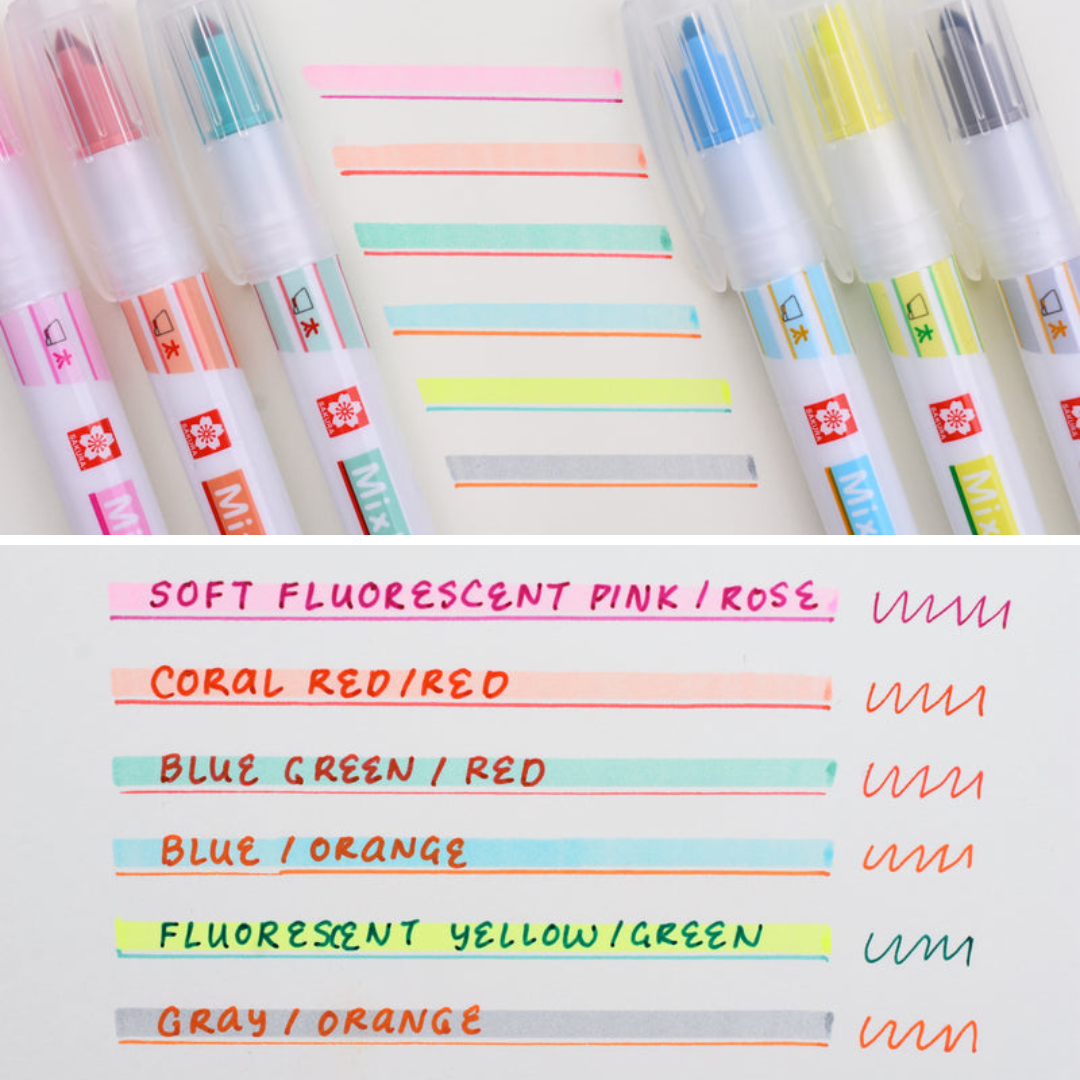 太 太 太 太 太 太
SAKURA SAKURA SAKURA SAKURA SAKURA
Mix Mix
SOFT FLUORESCENT PINK / ROSE
CORAL RED/RED
BLUE GREEN / RED
BLUE / ORANGE
FLUORESCENT YELLOW/GREEN
GRAY / ORANGE